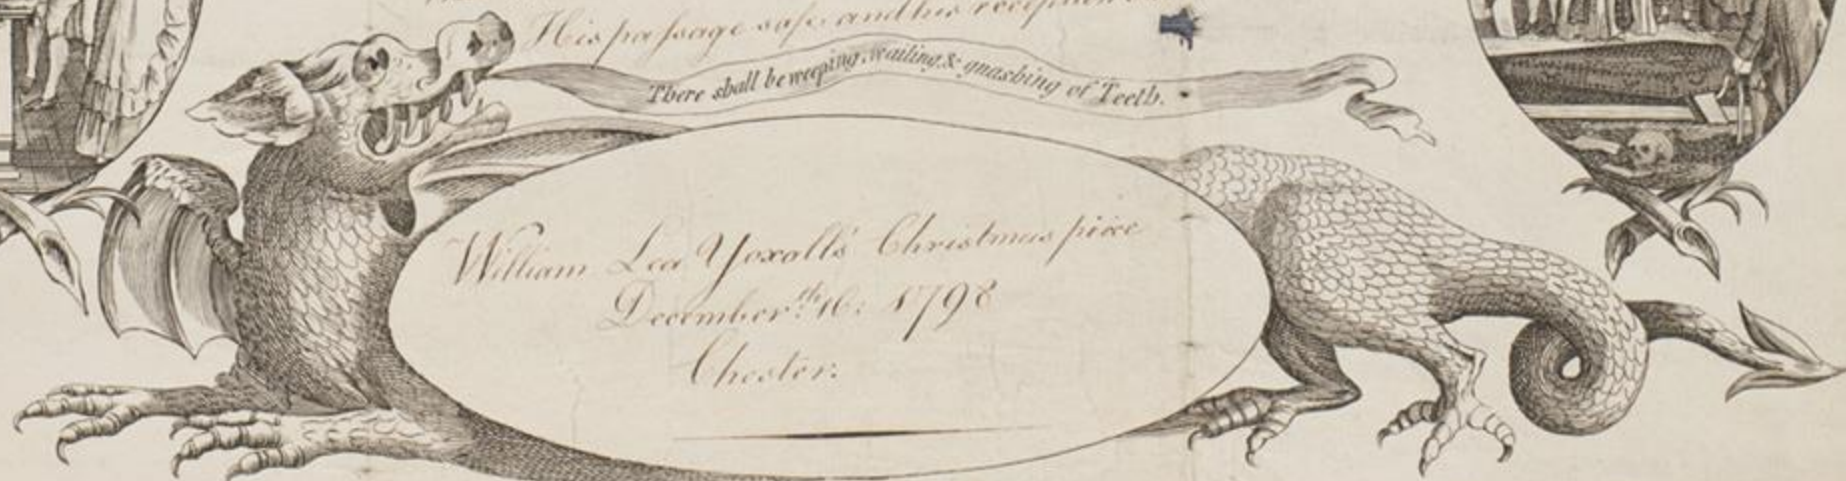 His passage safe, and his reception
There shall be weeping, wailing & gnashing of Teeth.
William Lea Yoxall's Christmas piece
December.th 16: 1798
Chester.